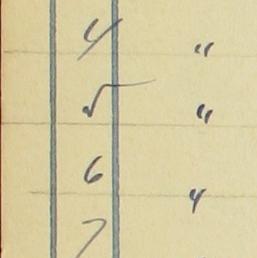 4 "
5 "
6 "
7